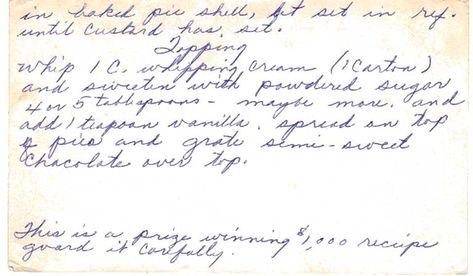 in baked pie shell, let set in ref.
until custard has set.
Topping
Whip 1 C. whipping cream (1 Carton)
and sweeten with powdered sugar
4 or 5 tablespoons - maybe more. and
add 1 teapoon vanilla. spread on top
of pies and grate semi-sweet
chocolate over top.
This is a prize winning $1,000 recipe
guard it carefully.